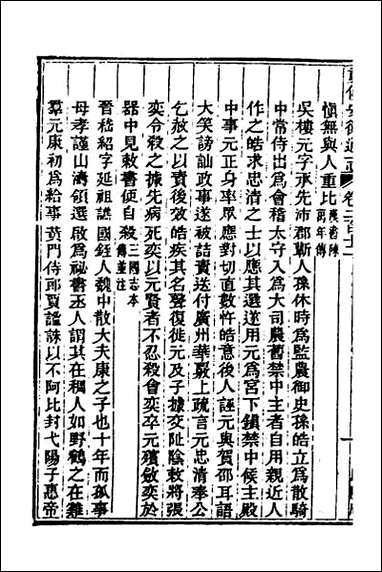 慎無與人重比後漢書陳
年傳
吳樓元字承先沛郡蘄人孫休時為監農御史孫皓立為散騎
中常侍出為會稽太守入為大司農舊禁中主者自用親近人
作之皓求忠清之士以應其選遂用元為宮下鎮禁中候主殿
中事元正身率眾應對切直數忤皓意後人誣元與賀邵耳語
大笑謗訕政事遂被詰責送付廣州華覈上疏言元忠清奉公
乞赦之以責後效皓疾其名聲復徙元及子據交阯陰敕將張
奕令殺之據先病死奕以元賢者不忍殺會奕卒元殯斂奕於
器中見敕書便自殺三國志本
傳並注
晉嵇紹字延祖譙國銍人魏中散大夫康之子也十年而孤事
母孝謹山濤領選啟為祕書丞人謂其在稠人如野鶴之在雞
羣元康初為給事黃門侍郎賈謐誅以不阿比封弋陽子惠帝